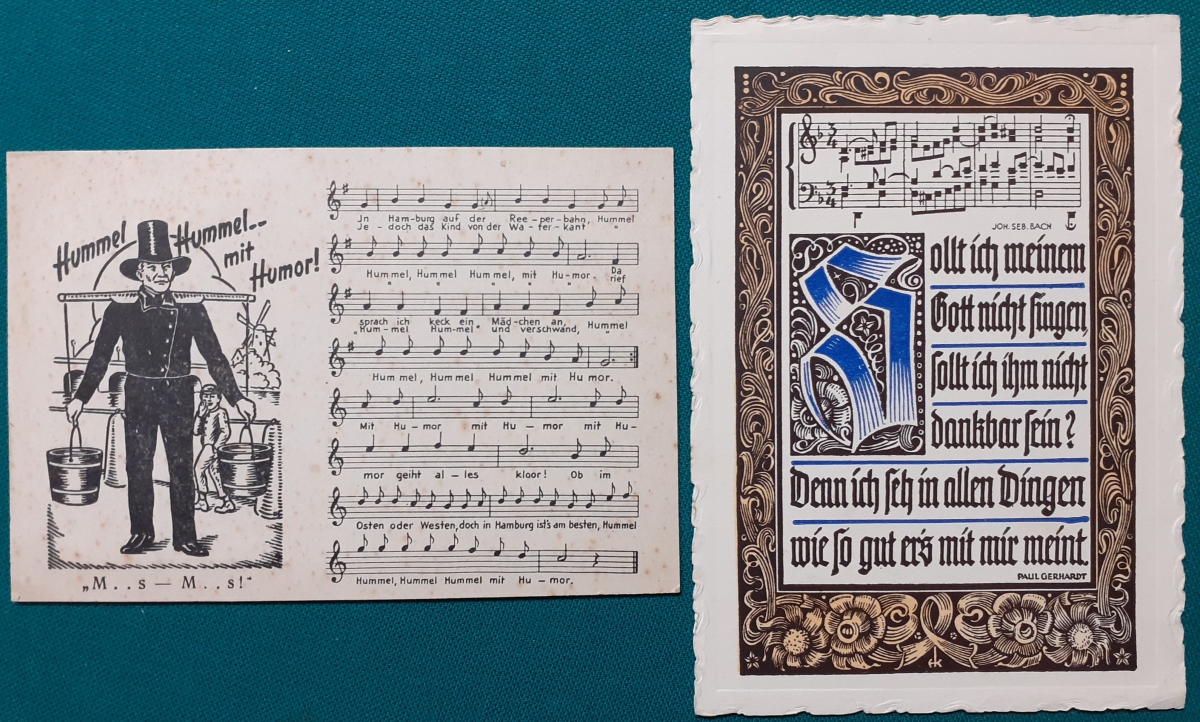 Hummel
Hummel--
mit
Humor!
„M . . s — M . . s!“
Jn Ham-burg auf der Ree-per-bahn, Hummel
Je-doch das Kind von der Wa-ter-kant "
Hummel, Hummel Hummel, mit Hu-mor. Da
" " " " " rief
sprach ich keck ein Mäd-chen an, Hummel
"Hum-mel Hum-mel" und verschwand, "
Hummel, Hummel Hummel mit Humor.
Mit Hu-mor mit Hu-mor mit Hu-
mor geiht al-les kloor! Ob im
Osten oder Westen, doch in Hamburg ist's am besten, Hummel
Hummel, Hummel Hummel mit Hu-mor.
JOH. SEB. BACH
Sollt ich meinem
Gott nicht singen,
sollt ich ihm nicht
dankbar sein?
Denn ich seh in allen Dingen
wie so gut er's mit mir meint.
PAUL GERHARDT